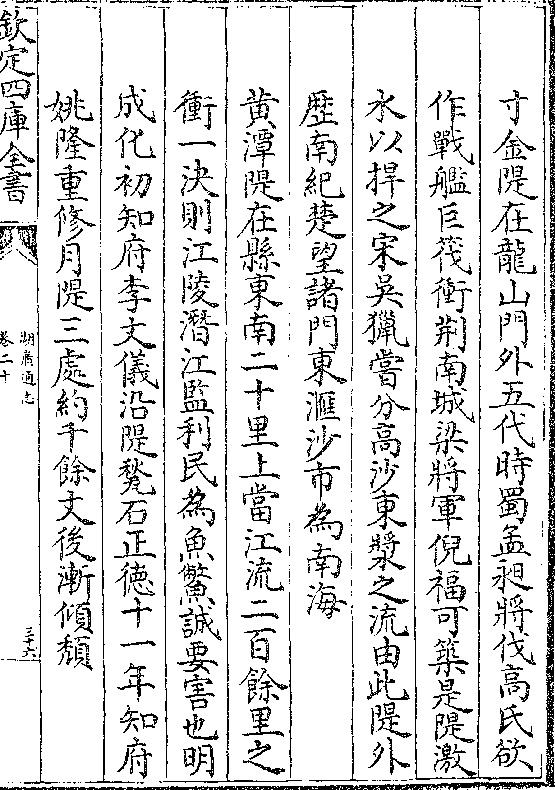 寸金隄在龍山門外五代時蜀孟昶將伐高氏欲
作戰艦巨筏衝荆南城梁將軍倪福可築是隄激
水以捍之宋吳獵嘗分高沙東漿之流由此隄外
歴南紀楚望諸門東滙沙市為南海
黄潭隄在縣東南二十里上當江流二百餘里之
衝一決則江陵潛江監利民為魚鱉誠要害也明
成化初知府李文儀沿隄甃石正德十一年知府
姚隆重修月隄三處約千餘丈後漸傾頽
欽定四庫全書
湖廣通志
卷二十
三十六